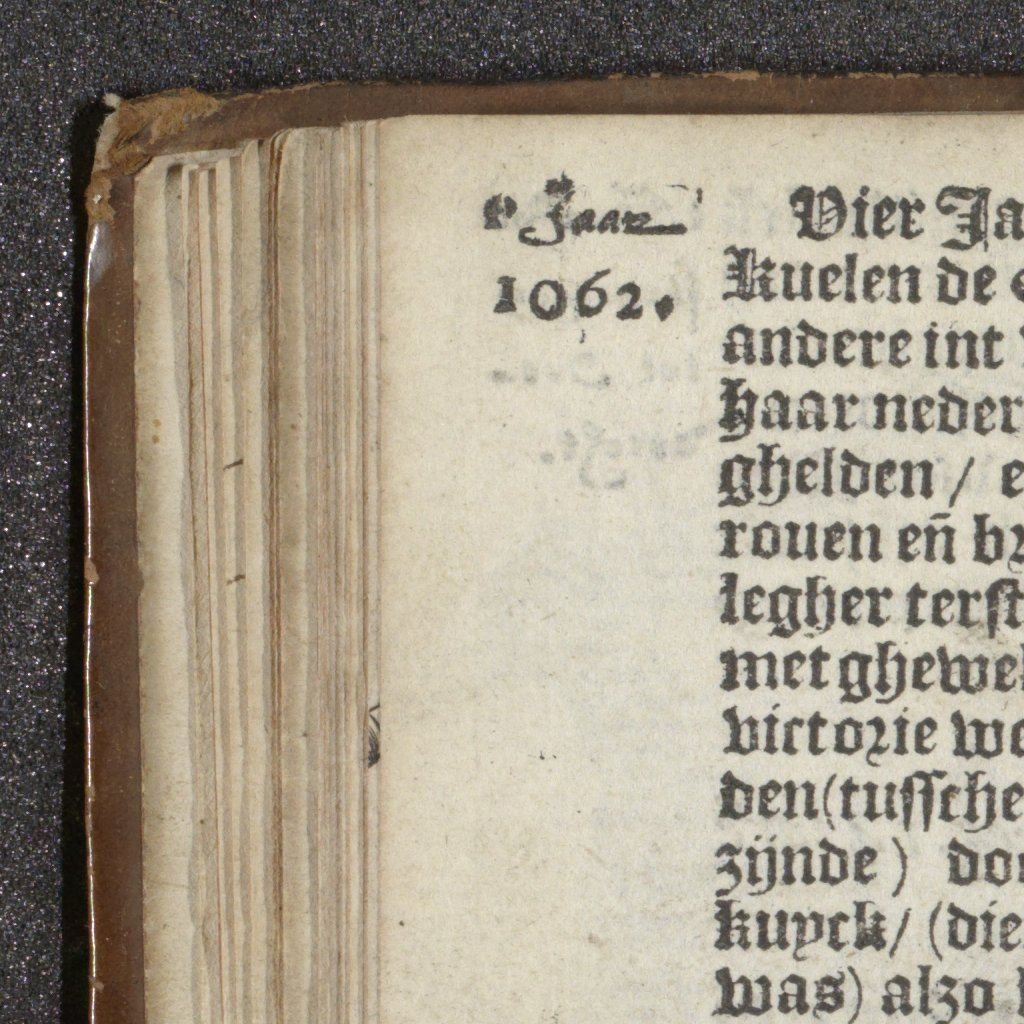 Jaar
1062.
Vier Ja
kuelen de
andere int
haar neder
ghelden / e
rouen en̄ br
legher terst
met ghewel
victorie wo
den (tussche
zijnde) don
kuyck / (die
was) alzo